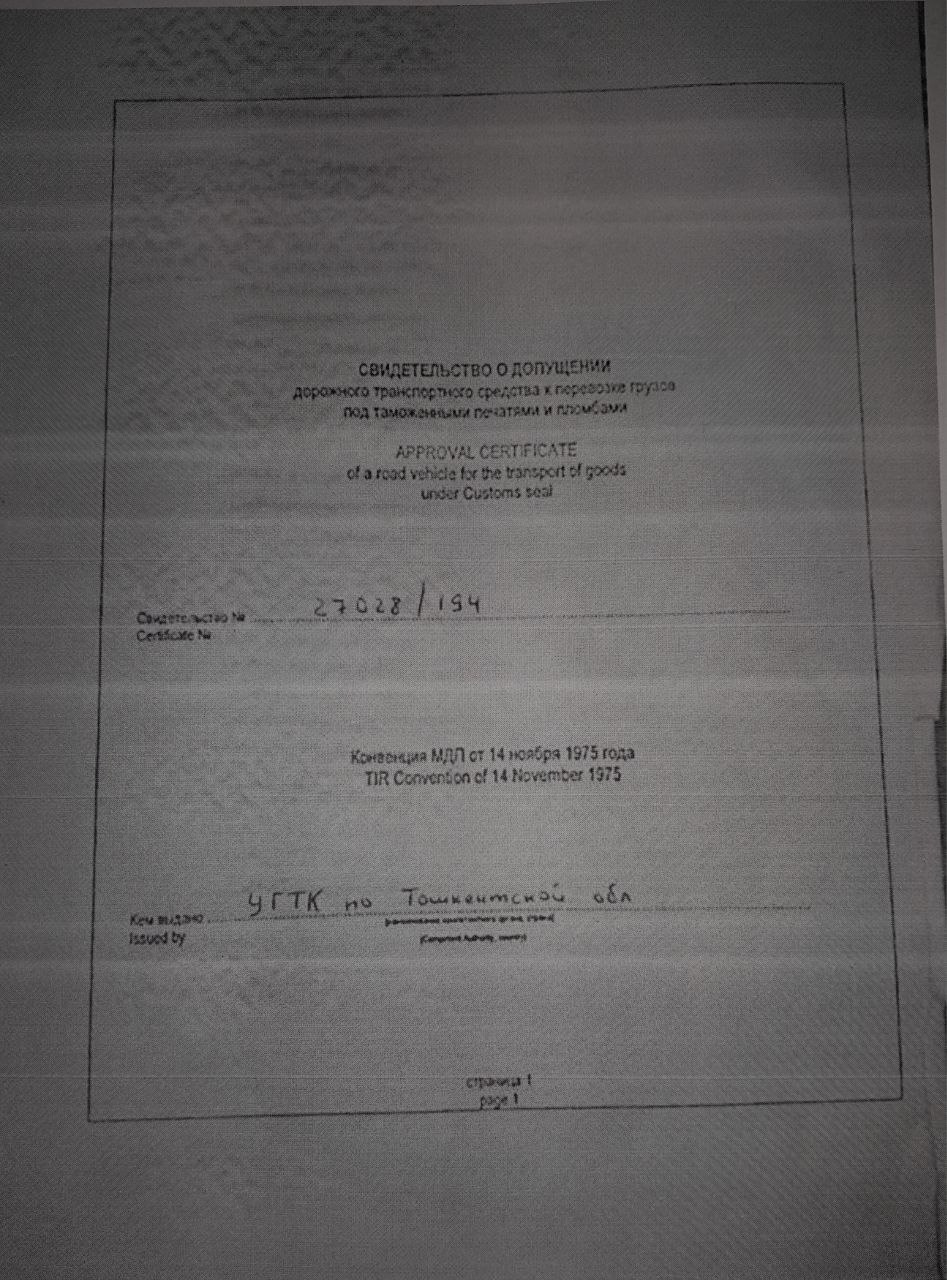 СВИДЕТЕЛЬСТВО О ДОПУЩЕНИИ
дорожного транспортного средства к перевозке грузов
под таможенными печатями и пломбами
APPROVAL CERTIFICATE
of a road vehicle for the transport of goods
under Customs seal
Свидетельство № 27028/194
Certificate №
Конвенция МДП от 14 ноября 1975 года
TIR Convention of 14 November 1975
Кем выдано УГТК по Тошкентской обл
Issued by
(Competent Authority, country)
страница 1
page 1